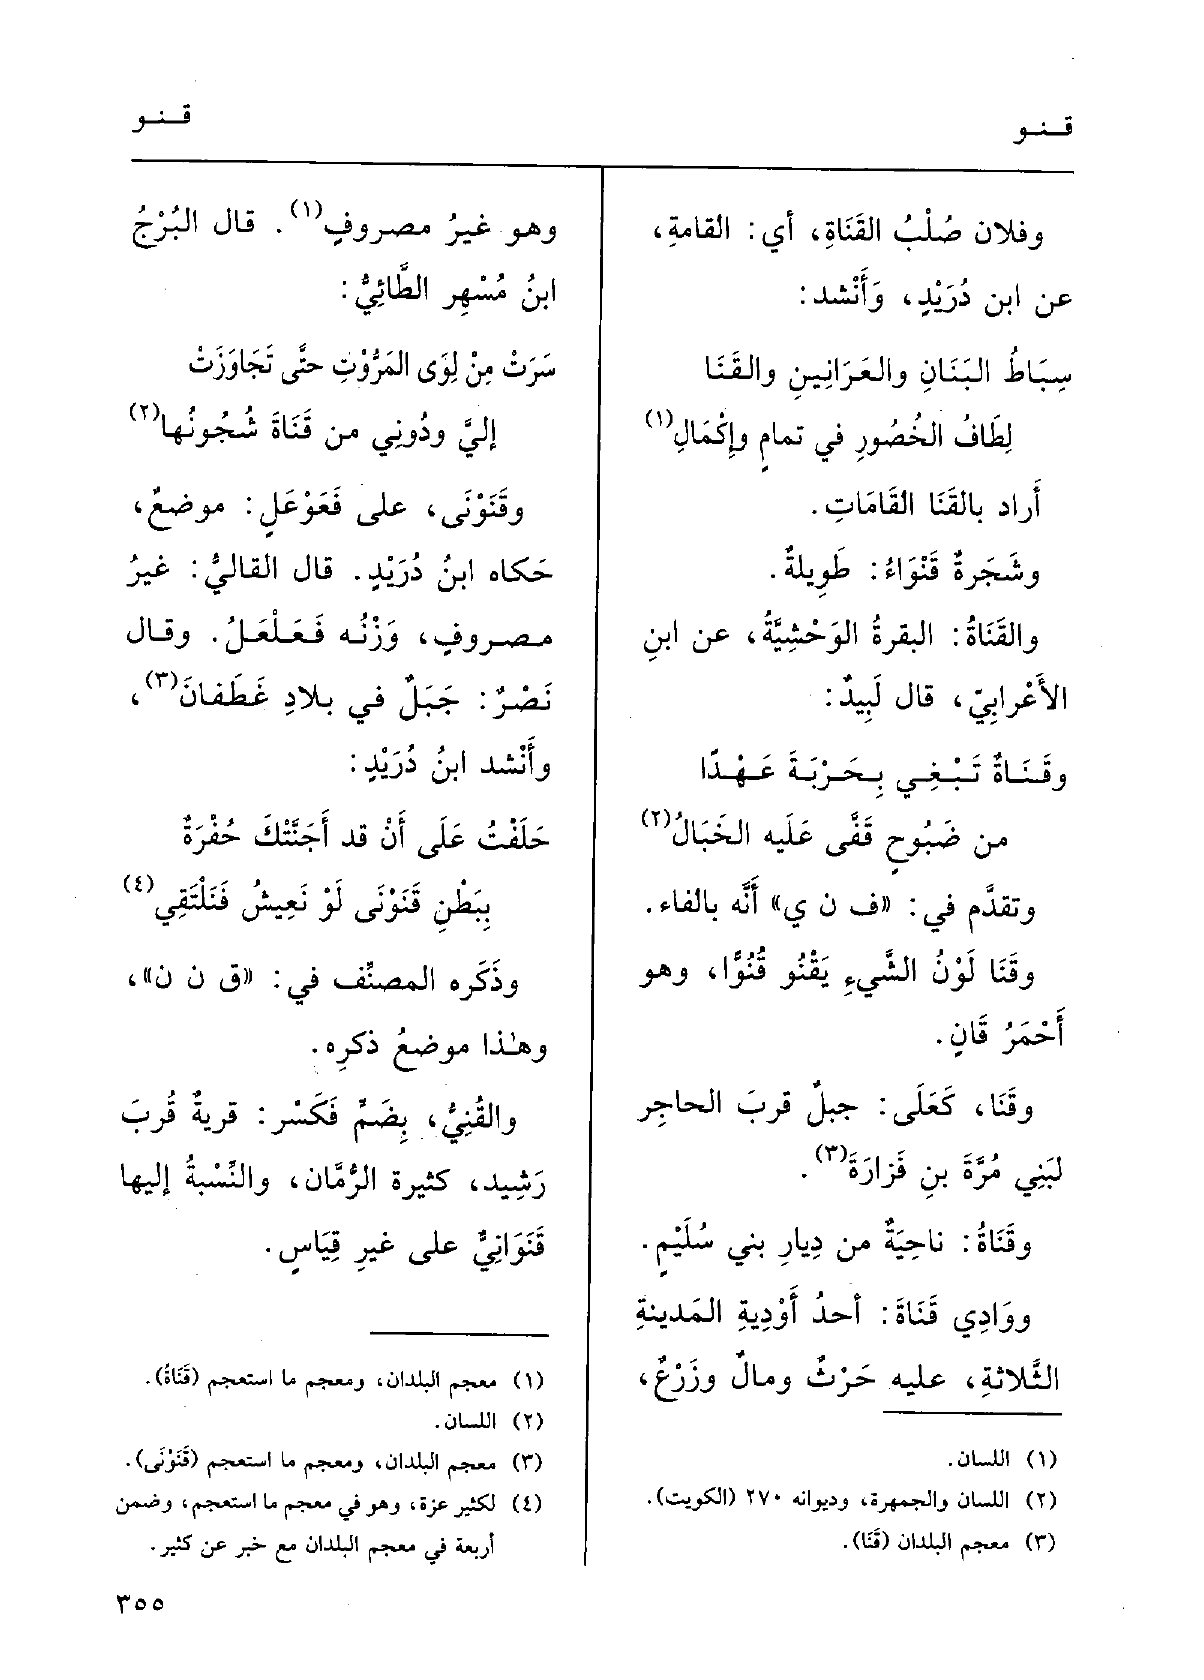 قنو
قنو
وفلان صُلْبُ القَنَاةِ، أي: القامةِ،
عن ابن دُرَيْدٍ، وَأَنْشد:
سِبَاطُ البَنَانِ والعَرَانِينِ والقَنَا
لِطَافُ الخُصُورِ في تمامٍ وإِكْمَالِ(١)
أَراد بالقَنَا القَامَاتِ.
وشَجَرةٌ قَنْوَاءُ: طَوِيلةٌ.
والقَنَاةُ: البقرةُ الوَحْشِيَّةُ، عن ابنِ
الأَعْرابِيّ، قال لَبِيدٌ:
وقَنَاةٌ تَبْغِي بِحَرْبَةَ عَهْدًا
من ضَبُوحٍ قَفَّى عَلَيه الخَبَالُ(٢)
وتقدَّم في: «ف ن ي» أَنَّه بالفاء.
وقَنَا لَوْنُ الشَّيءِ يَقْنُو قُنُوًّا، وهو
أَحْمَرُ قَانٍ.
وقَنَا، كَعَلَى: جبلٌ قربَ الحاجِر
لبَنِي مُرَّةَ بنِ فَزارَةَ(٣).
وقَنَاةُ: ناحِيَةٌ من دِيارِ بني سُلَيْمٍ.
ووَادِي قَنَاةَ: أَحدُ أَوْدِيةِ المَدينةِ
الثَّلاثةِ، عليه حَرْثٌ ومالٌ وزَرْعٌ،
(١) اللسان.
(٢) اللسان والجمهرة، وديوانه ٢٧٠ (الكويت).
(٣) معجم البلدان (قَنَا).
وهو غيرُ مصروفٍ(١). قال البُرْجُ
ابنُ مُسْهِر الطَّائِيُّ:
سَرَتْ مِنْ لِوَى المَرُّوْتِ حتَّى تَجَاوَزَتْ
إليَّ ودُونِي من قَنَاةَ شُجُونُها(٢)
وقَنَوْنَى، على فَعَوْعَلٍ: موضعٌ،
حَكاه ابنُ دُرَيْدٍ. قال القاليُّ: غيرُ
مصروفٍ، وَزْنُه فَعَلْعَلُ. وقال
نَصْرٌ: جَبَلٌ في بلادِ غَطَفانَ(٣)،
وأَنْشد ابنُ دُرَيْدٍ:
حَلَفْتُ عَلَى أَنْ قد أَجَنَّتْكَ حُفْرَةٌ
بِبَطْنِ قَنَوْنَى لَوْ نَعِيشُ فَنَلْتَقِي(٤)
وذَكَره المصنِّف في: «ق ن ن»،
وهٰذا موضعُ ذكرِه.
والقُنِيُّ، بِضَمٍّ فَكَسْر: قريةٌ قُربَ
رَشِيد، كثيرة الرُّمَّان، والنِّسْبةُ إليها
قَنَوَانِيٌّ على غيرِ قِيَاسٍ.
(١) معجم البلدان، ومعجم ما استعجم (قَنَاةُ).
(٢) اللسان.
(٣) معجم البلدان، ومعجم ما استعجم (قَنَوْنَى).
(٤) لكثير عزة، وهو في معجم ما استعجم، وضمن
أربعة في معجم البلدان مع خبر عن كثير.
٣٥٥